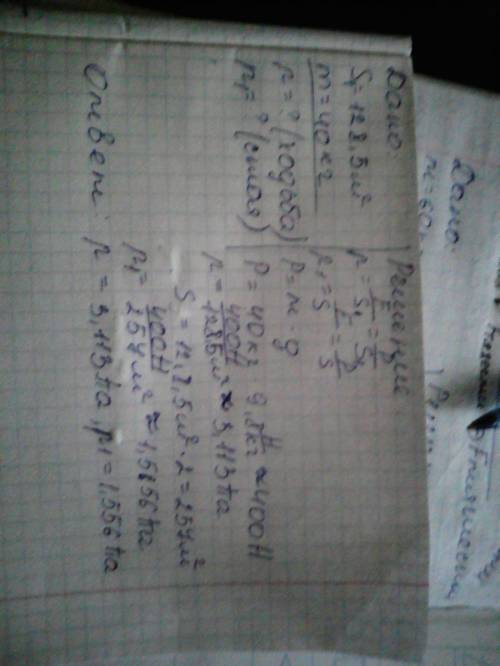 Дано:
S₁ = 128,5 м²
m = 40 кг
p = ? (ходьба)
p₁ = ? (стоя)
Решение:
p = F/S₁ = P/S₁
p₁ = F/S = P/S
P = m · g
P = 40 кг 9,8 Н/кг ≈ 400 Н
p = 400Н/128,5 м² ≈ 3,113 Па
S = 12,8,5 м² · 2 = 257 м²
p₁ = 400Н/257 м² ≈ 1,5556 Па
Ответ: p = 3,113 Па, p₁ = 1,556 Па
Дано:
m = 60